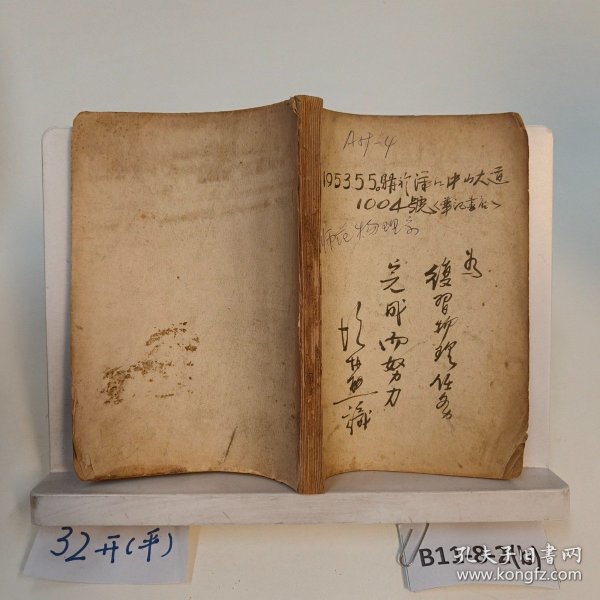 AH-4
1953.5.5.購於漢口中山大道
1004號《華記書店》
師范物理学
為
復習物理任务
完成而努力
識
32开(平)
B13-8-3(6)
孔夫子旧书网
www.kongfz.com